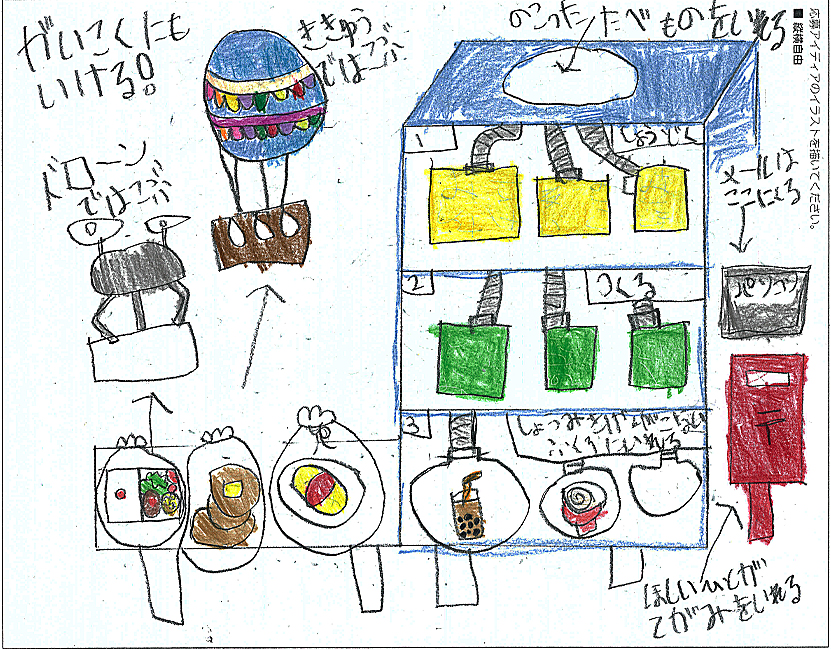 応募アイディアのイラストを描いてください。
■ 縦横自由
がいこくにも
いける!!
ききゅう
ではこぶ
のこった たべものをいれる
ドローン
ではこぶ
1
しょうどく
メールは
ここにくる
2
つくる
パソコン
3
ふくろにいれる
〒
ほしいひとが
てがみをいれる